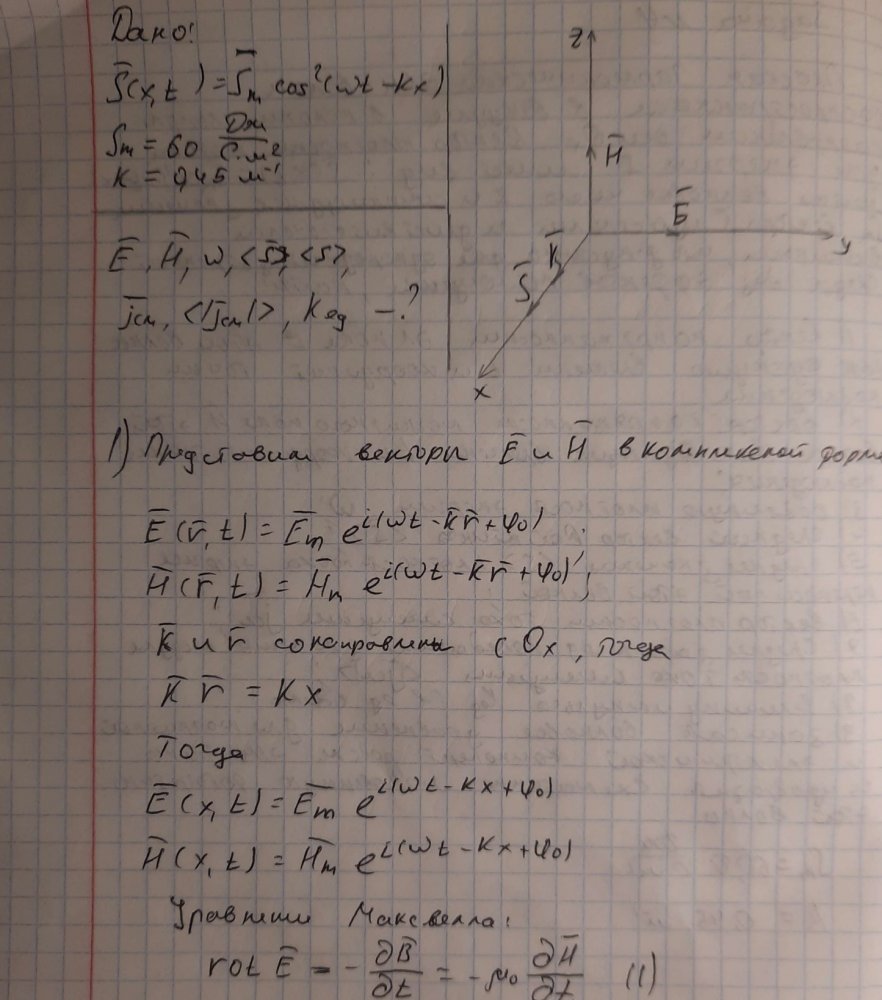 Дано:
S̄(x,t) = S̄m cos²(ωt - kx)
Sm = 60 Дж/(с·м²)
K = 0,45 м⁻¹
Ē, H̄, ω, <S̄>, <S>,
j̄см, <|j̄см|>, Kед - ?
z
H̄
Ē
y
K̄
S̄
x
1) Представим векторы Ē и H̄ в комплексной форме
Ē(r̄,t) = Ēm e^i(ωt - K̄r̄ + φ₀);
H̄(r̄,t) = H̄m e^i(ωt - K̄r̄ + φ₀);
K̄ и r̄ сонаправлены с Ox, тогда
K̄ r̄ = Kx
Тогда
Ē(x,t) = Ēm e^i(ωt - Kx + φ₀)
H̄(x,t) = H̄m e^i(ωt - Kx + φ₀)
Уравнения Максвелла:
rot Ē = - ∂B̄/∂t = -μ₀ ∂H̄/∂t (1)